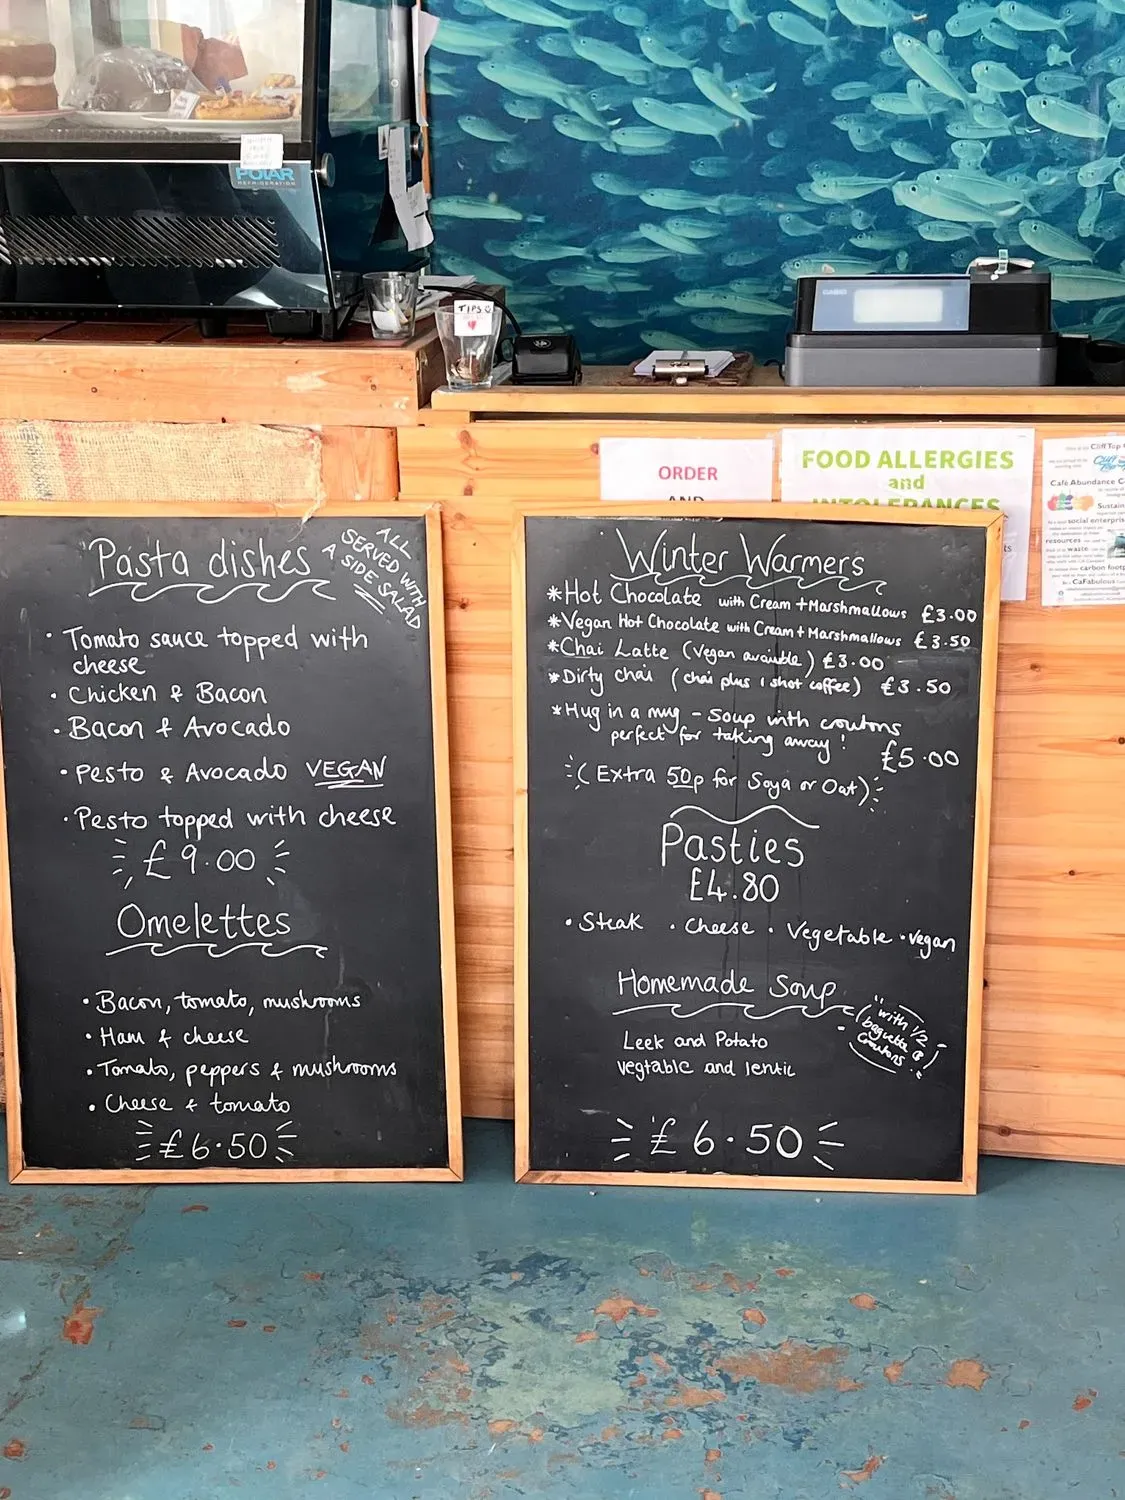 POLAR
REFRIGERATION
TIPS
CASIO
ORDER
AND
FOOD ALLERGIES
and
INTOLERANCES
Cliff Top
Café Abundance
social enterprise
resources
waste
carbon footp
CaFabulous
Pasta dishes
ALL
SERVED WITH
A SIDE SALAD
• Tomato sauce topped with
cheese
• Chicken & Bacon
• Bacon & Avocado
• Pesto & Avocado VEGAN
• Pesto topped with cheese
£9.00
Omelettes
• Bacon, tomato, mushrooms
• Ham & cheese
• Tomato, peppers & mushrooms
• Cheese & tomato
£6.50
Winter Warmers
*Hot Chocolate with Cream + Marshmallows £3.00
*Vegan Hot Chocolate with Cream + Marshmallows £3.50
*Chai Latte (vegan available) £3.00
*Dirty chai (chai plus 1 shot coffee) £3.50
*Hug in a mug - soup with croutons
perfect for taking away!
£5.00
(Extra 50p for Soya or Oat)
Pasties
£4.80
• Steak • Cheese • Vegetable • Vegan
Homemade Soup
with 1/2
baguette &
croutons
Leek and Potato
vegtable and lentil
£6.50